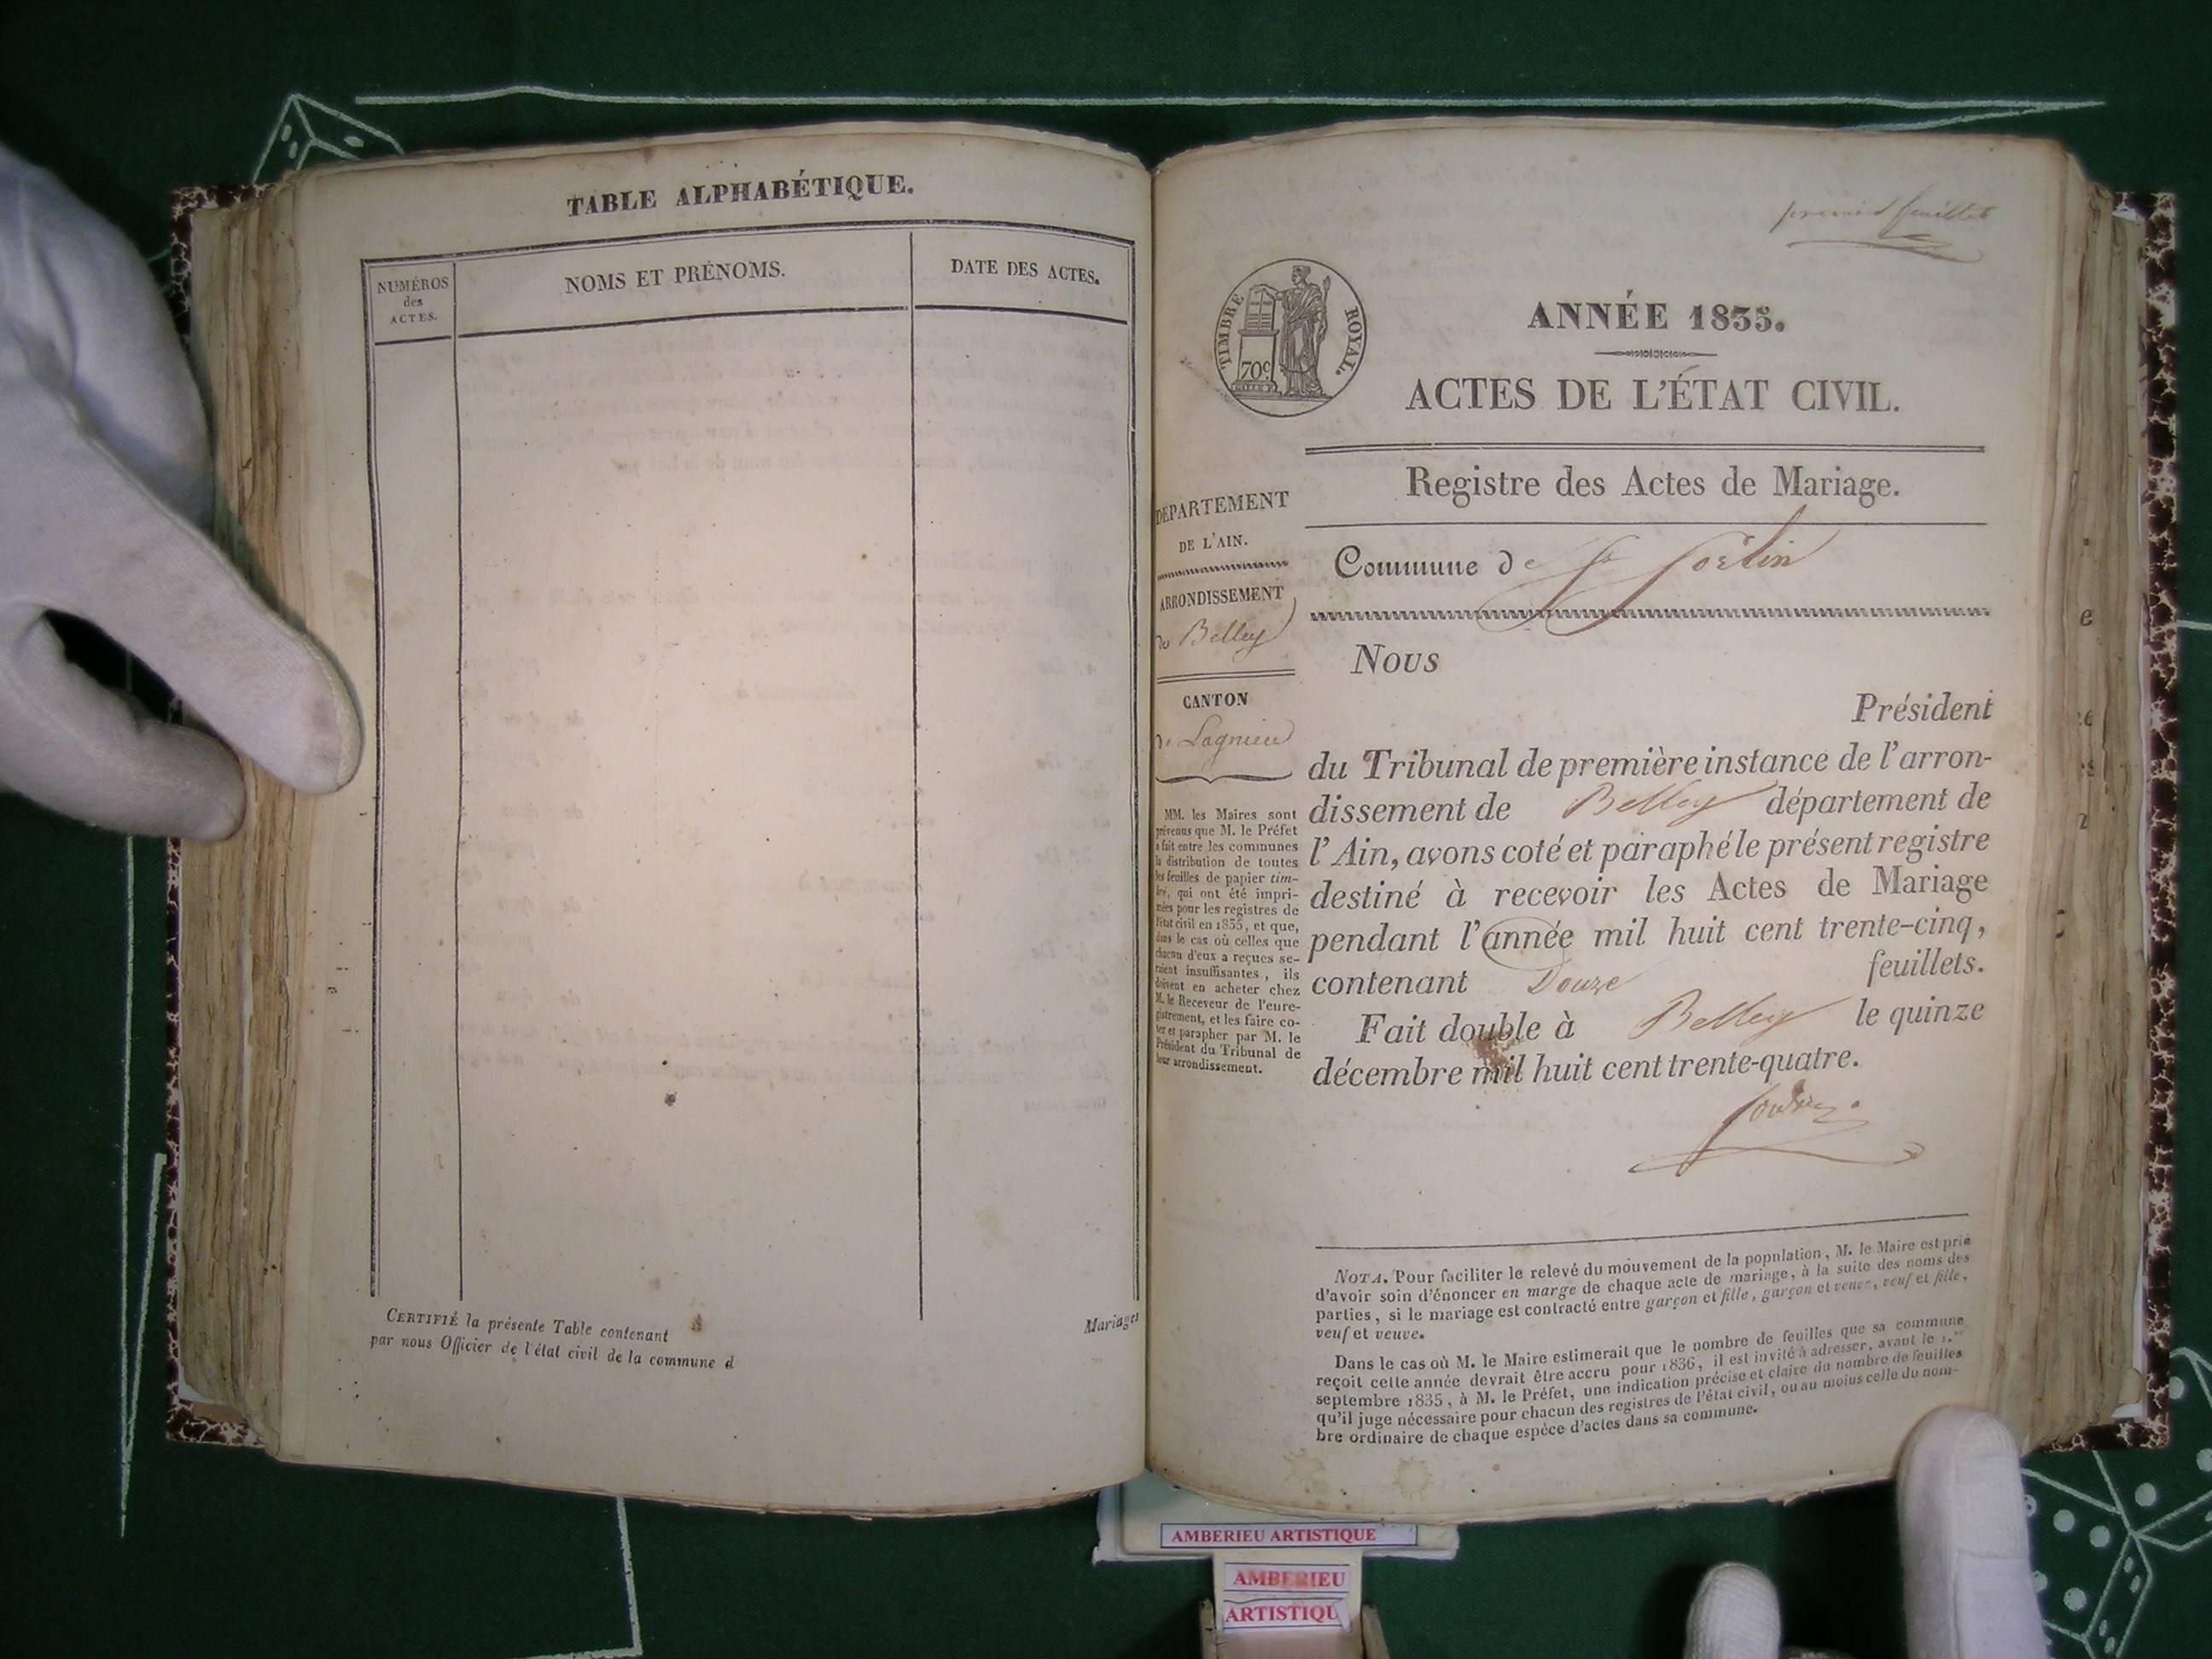 TABLE ALPHABÉTIQUE.
NUMÉROS
des
ACTES.
NOMS ET PRÉNOMS.
DATE DES ACTES.
CERTIFIÉ la présente Table contenant
par nous Officier de l'état civil de la commune d
Mariages
premier feuillet
TIMBRE ROYAL.
70c
ANNÉE 1835.
ACTES DE L'ÉTAT CIVIL.
Registre des Actes de Mariage.
DÉPARTEMENT
DE L'AIN.
ARRONDISSEMENT
de Belley
CANTON
de Lagnieu
MM. les Maires sont
prévenus que M. le Préfet
a fait entre les communes
la distribution de toutes
les feuilles de papier tim-
bré, qui ont été impri-
mées pour les registres de
l'état civil en 1835, et que,
dans le cas où celles que
chacun d'eux a reçues se-
raient insuffisantes, ils
doivent en acheter chez
M. le Receveur de l'enre-
gistrement, et les faire co-
ter et parapher par M. le
Président du Tribunal de
leur arrondissement.
Commune de St Sorlin
Nous
Président
du Tribunal de première instance de l'arron-
dissement de Belley département de
l'Ain, avons coté et paraphé le présent registre
destiné à recevoir les Actes de Mariage
pendant l'année mil huit cent trente-cinq,
contenant Douze feuillets.
Fait double à Belley le quinze
décembre mil huit cent trente-quatre.
NOTA. Pour faciliter le relevé du mouvement de la population, M. le Maire est prié
d'avoir soin d'énoncer en marge de chaque acte de mariage, à la suite des noms des
parties, si le mariage est contracté entre garçon et fille, garçon et veuve, veuf et fille,
veuf et veuve.
Dans le cas où M. le Maire estimerait que le nombre de feuilles que sa commune
reçoit cette année devrait être accru pour 1836, il est invité à adresser, avant le 1.er
septembre 1835, à M. le Préfet, une indication précise et claire du nombre de feuilles
qu'il juge nécessaire pour chacun des registres de l'état civil, ou au moins celle du nom-
bre ordinaire de chaque espèce d'actes dans sa commune.
AMBERIEU ARTISTIQUE
AMBERIEU
ARTISTIQU